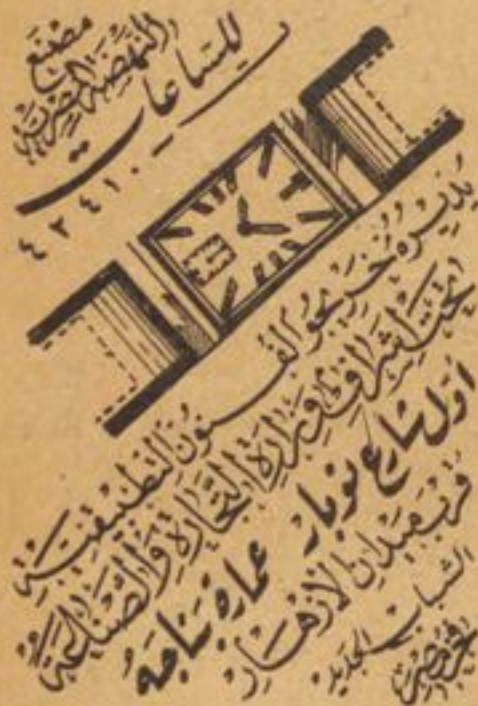 مصنع
النهضة المصرية
للساعات
٤٢٤١٠
يديره خريجو الفنون التطبيقية
تحت إشراف وزارة التجارة والصناعة
أول شارع نوبار عمارة بناجه
قرب ميدان الأزهار
الشباب الجديد